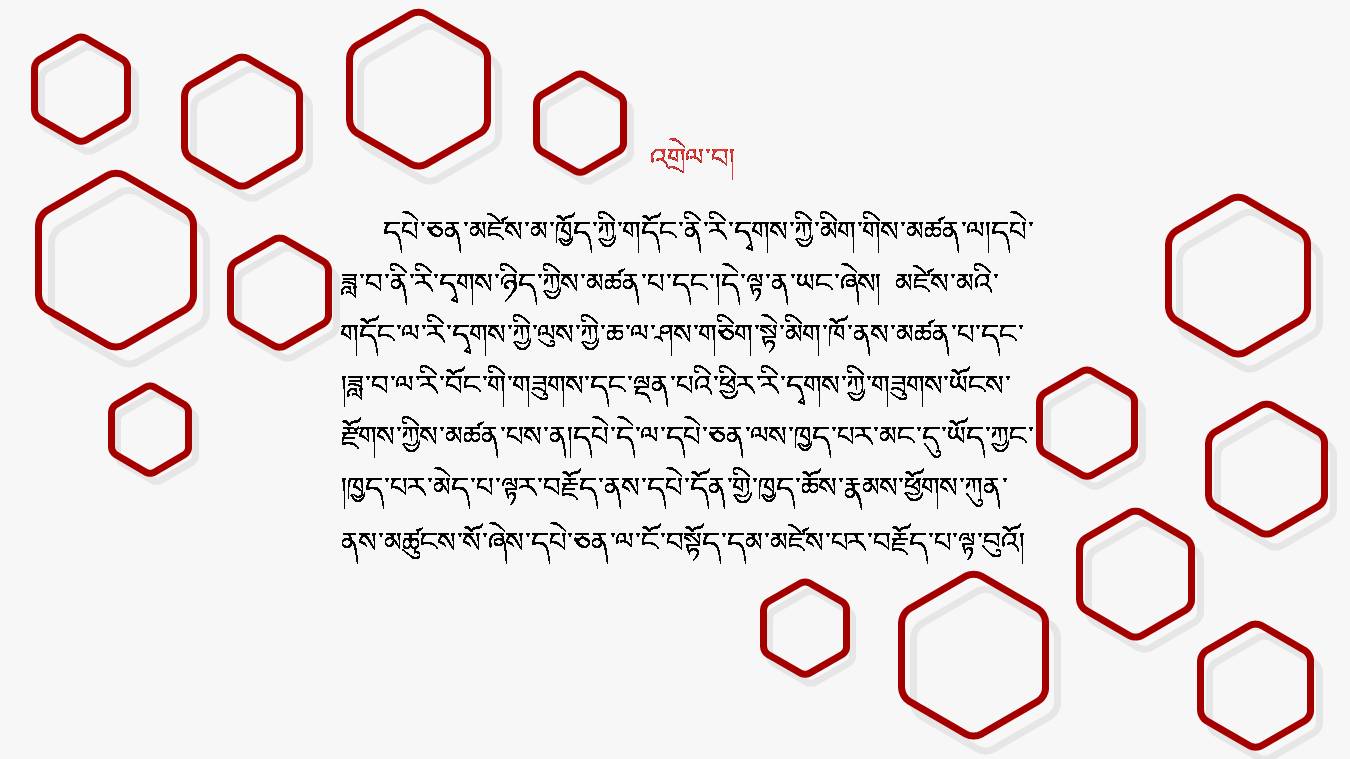 འགྲེལ་བ།
དཔེ་ཅན་མཛེས་མ་ཁྱོད་ཀྱི་གདོང་ནི་རི་དྭགས་ཀྱི་མིག་གིས་མཚན་ལ།དཔེ་
ཟླ་བ་ནི་རི་དྭགས་ཉིད་ཀྱིས་མཚན་པ་དང་།དེ་ལྟ་ན་ཡང་ཞེས། མཛེས་མའི་
གདོང་ལ་རི་དྭགས་ཀྱི་ལུས་ཀྱི་ཆ་ལ་ཤས་གཅིག་སྟེ་མིག་ཁོ་ནས་མཚན་པ་དང་
།ཟླ་བ་ལ་རི་བོང་གི་གཟུགས་དང་ལྡན་པའི་ཕྱིར་རི་དྭགས་ཀྱི་གཟུགས་ཡོངས་
རྫོགས་ཀྱིས་མཚན་པས་ན།དཔེ་དེ་ལ་དཔེ་ཅན་ལས་ཁྱད་པར་མང་དུ་ཡོད་ཀྱང་
།ཁྱད་པར་མེད་པ་ལྟར་བརྗོད་ནས་དཔེ་དོན་གྱི་ཁྱད་ཆོས་རྣམས་ཕྱོགས་ཀུན་
ནས་མཚུངས་སོ་ཞེས་དཔེ་ཅན་ལ་ངོ་བསྟོད་དམ་མཛེས་པར་བརྗོད་པ་ལྟ་བུའོ།